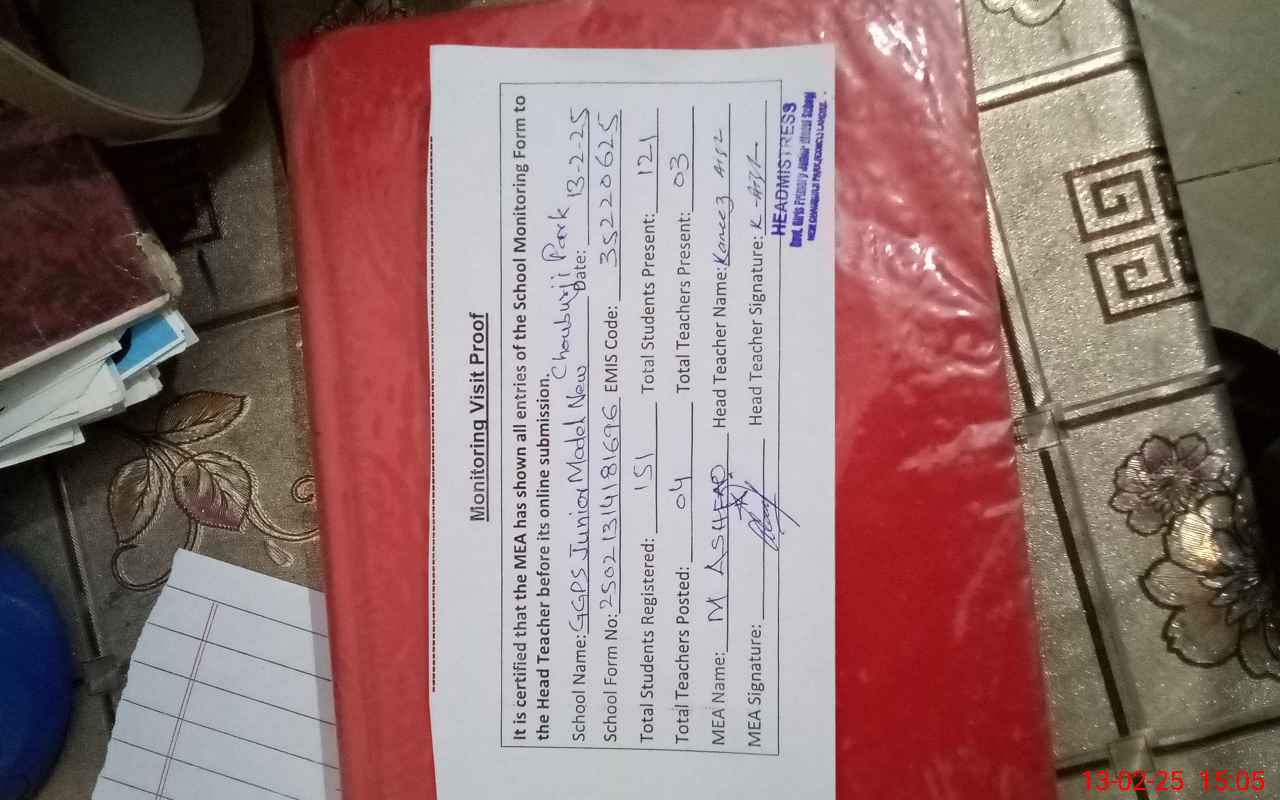 Monitoring Visit Proof
It is certified that the MEA has shown all entries of the School Monitoring Form to
the Head Teacher before its online submission.
School Name: GGPS Junior Model New Chouburji Park Date: 13-2-25
School Form No: 2502131418 1696 EMIS Code: 35220625
Total Students Registered: 151 Total Students Present: 121
Total Teachers Posted: 04 Total Teachers Present: 03
MEA Name: M ASHEAD Head Teacher Name: Kaneez
MEA Signature: Head Teacher Signature: K-
HEADMISTRESS
Govt. Girls Primary Junior Model School
NEW CHAUBURJI PARK LAHORE.
13-02-25 15:05